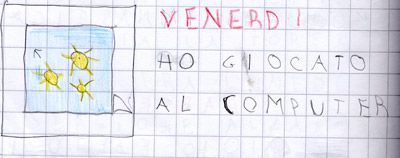 VENERDI
HO GIOCATO
AL COMPUTER